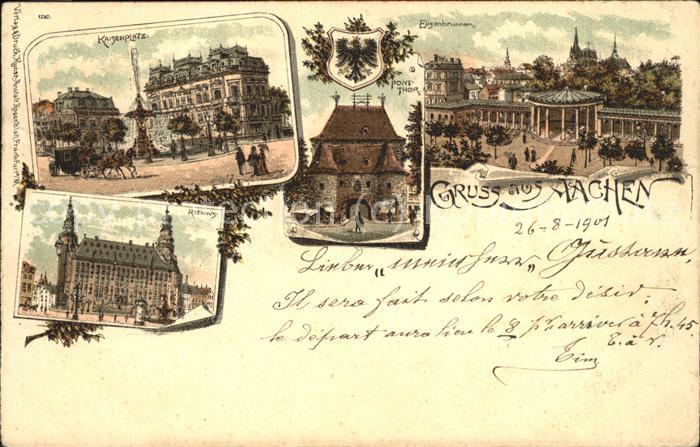 1280.
KAISERPLATZ.
Elisenbrunnen.
PONT-
THOR.
RATHAUS
GRUSS aus AACHEN
26-8-1901
Lieber „mein Herr" Gustave,
Il sera fait selon votre désir.
le départ aura lieu le 8 pr. arriver à 7h.45
t.à v.
Tim